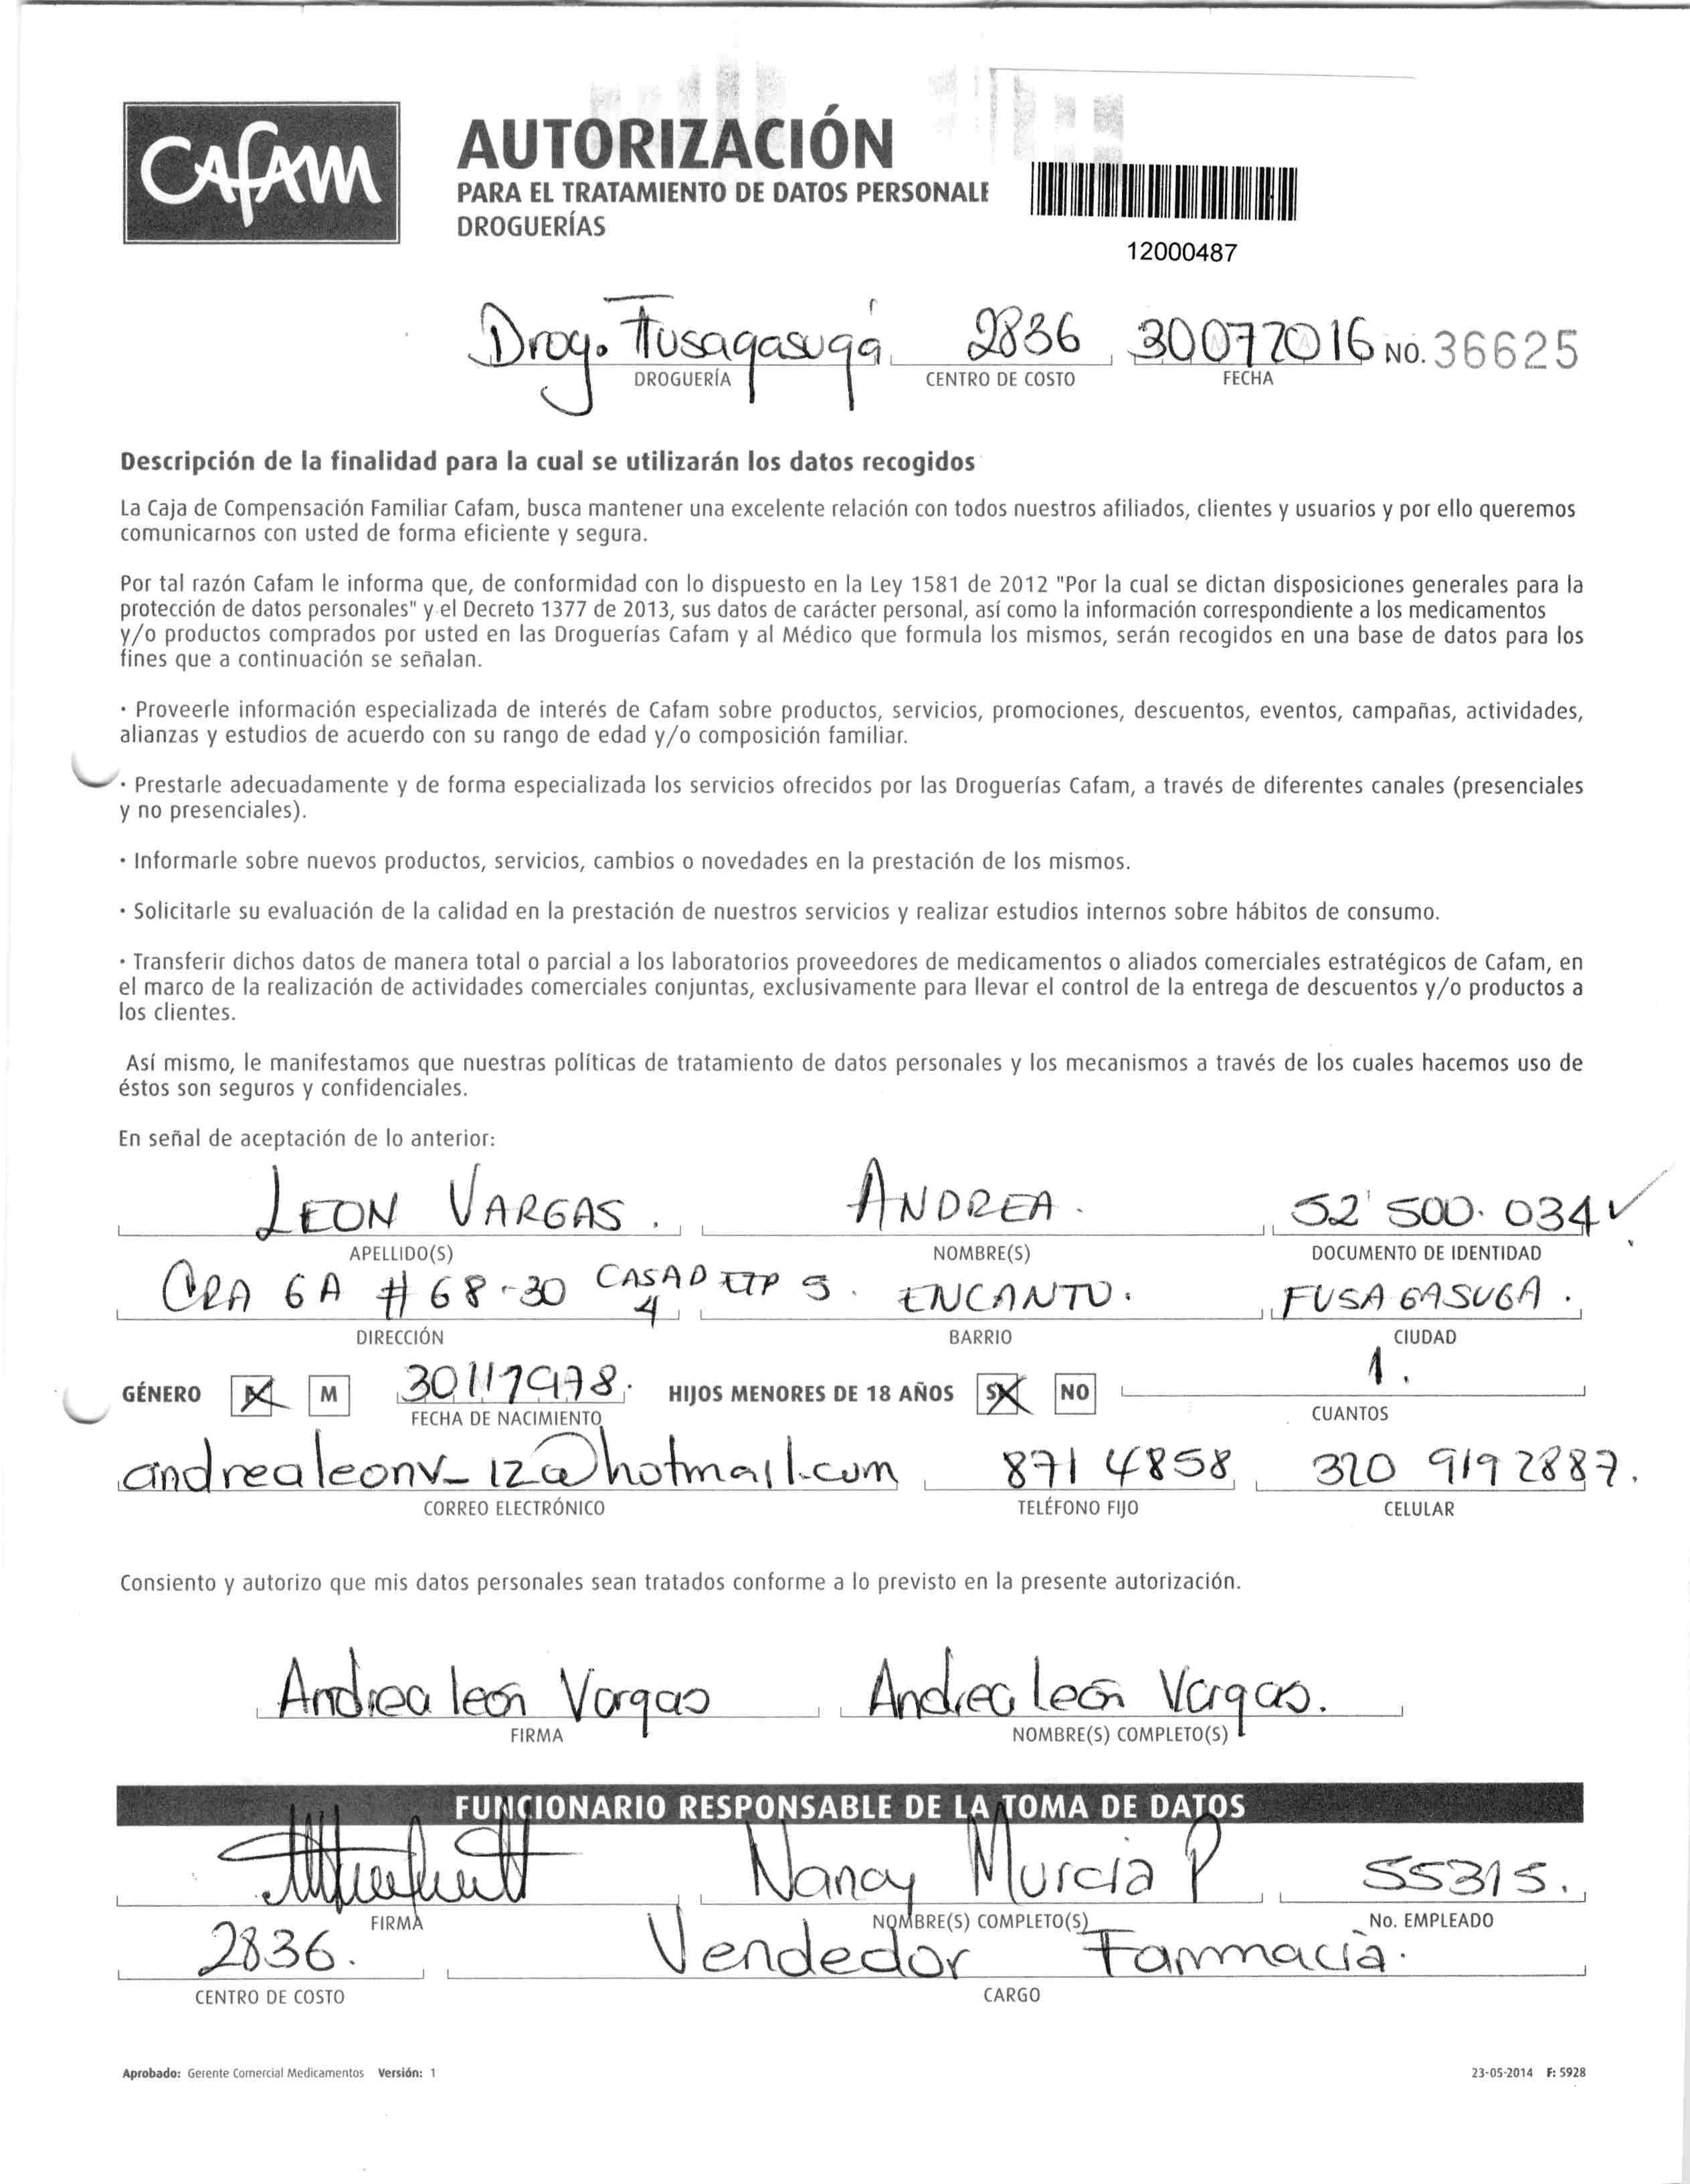 Cafam
AUTORIZACIÓN
PARA EL TRATAMIENTO DE DATOS PERSONALE
DROGUERÍAS
12000487
Drog. Fusagasuga 2836 30072016 NO. 36625
DROGUERÍA CENTRO DE COSTO FECHA
Descripción de la finalidad para la cual se utilizarán los datos recogidos
La Caja de Compensación Familiar Cafam, busca mantener una excelente relación con todos nuestros afiliados, clientes y usuarios y por ello queremos
comunicarnos con usted de forma eficiente y segura.
Por tal razón Cafam le informa que, de conformidad con lo dispuesto en la Ley 1581 de 2012 "Por la cual se dictan disposiciones generales para la
protección de datos personales" y el Decreto 1377 de 2013, sus datos de carácter personal, así como la información correspondiente a los medicamentos
y/o productos comprados por usted en las Droguerías Cafam y al Médico que formula los mismos, serán recogidos en una base de datos para los
fines que a continuación se señalan.
· Proveerle información especializada de interés de Cafam sobre productos, servicios, promociones, descuentos, eventos, campañas, actividades,
alianzas y estudios de acuerdo con su rango de edad y/o composición familiar.
· Prestarle adecuadamente y de forma especializada los servicios ofrecidos por las Droguerías Cafam, a través de diferentes canales (presenciales
y no presenciales).
· Informarle sobre nuevos productos, servicios, cambios o novedades en la prestación de los mismos.
· Solicitarle su evaluación de la calidad en la prestación de nuestros servicios y realizar estudios internos sobre hábitos de consumo.
· Transferir dichos datos de manera total o parcial a los laboratorios proveedores de medicamentos o aliados comerciales estratégicos de Cafam, en
el marco de la realización de actividades comerciales conjuntas, exclusivamente para llevar el control de la entrega de descuentos y/o productos a
los clientes.
Así mismo, le manifestamos que nuestras políticas de tratamiento de datos personales y los mecanismos a través de los cuales hacemos uso de
éstos son seguros y confidenciales.
En señal de aceptación de lo anterior:
LEON VARGAS. ANDREA. 52'500.034
APELLIDO(S) NOMBRE(S) DOCUMENTO DE IDENTIDAD
CRA 6A # 68-30 CASA 4 ETP 3. ENCANTO. FUSAGASUGA.
DIRECCIÓN BARRIO CIUDAD
GÉNERO F M 30111978. HIJOS MENORES DE 18 AÑOS SI NO 1.
FECHA DE NACIMIENTO CUANTOS
andrealeonv_12@hotmail.com 871 4858 320 919 2887.
CORREO ELECTRÓNICO TELÉFONO FIJO CELULAR
Consiento y autorizo que mis datos personales sean tratados conforme a lo previsto en la presente autorización.
Andrea león Vargas Andrea León Vargas.
FIRMA NOMBRE(S) COMPLETO(S)
FUNCIONARIO RESPONSABLE DE LA TOMA DE DATOS
Nancy Murcia P 55315.
FIRMA NOMBRE(S) COMPLETO(S) No. EMPLEADO
2836. Vendedor Farmacia.
CENTRO DE COSTO CARGO
Aprobado: Gerente Comercial Medicamentos Versión: 1 23-05-2014 F: 5928